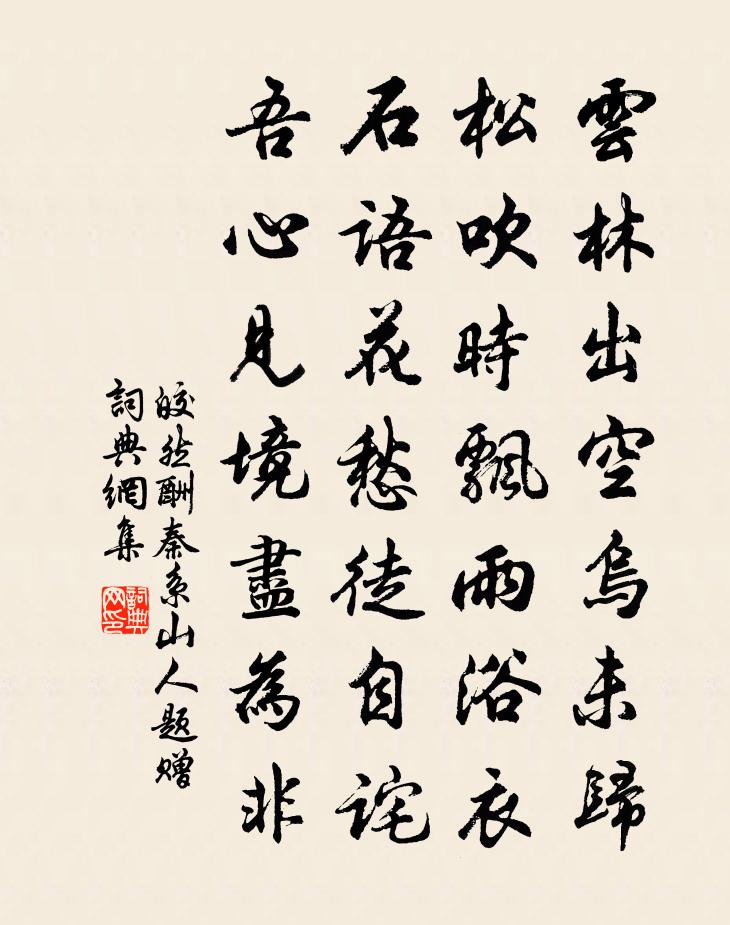 雲林出空烏未歸
松吹時飄雨浴衣
石語花愁徒自詫
吾心見境盡為非
皎然酬秦系山人題贈
詞典網集
詞典
网印